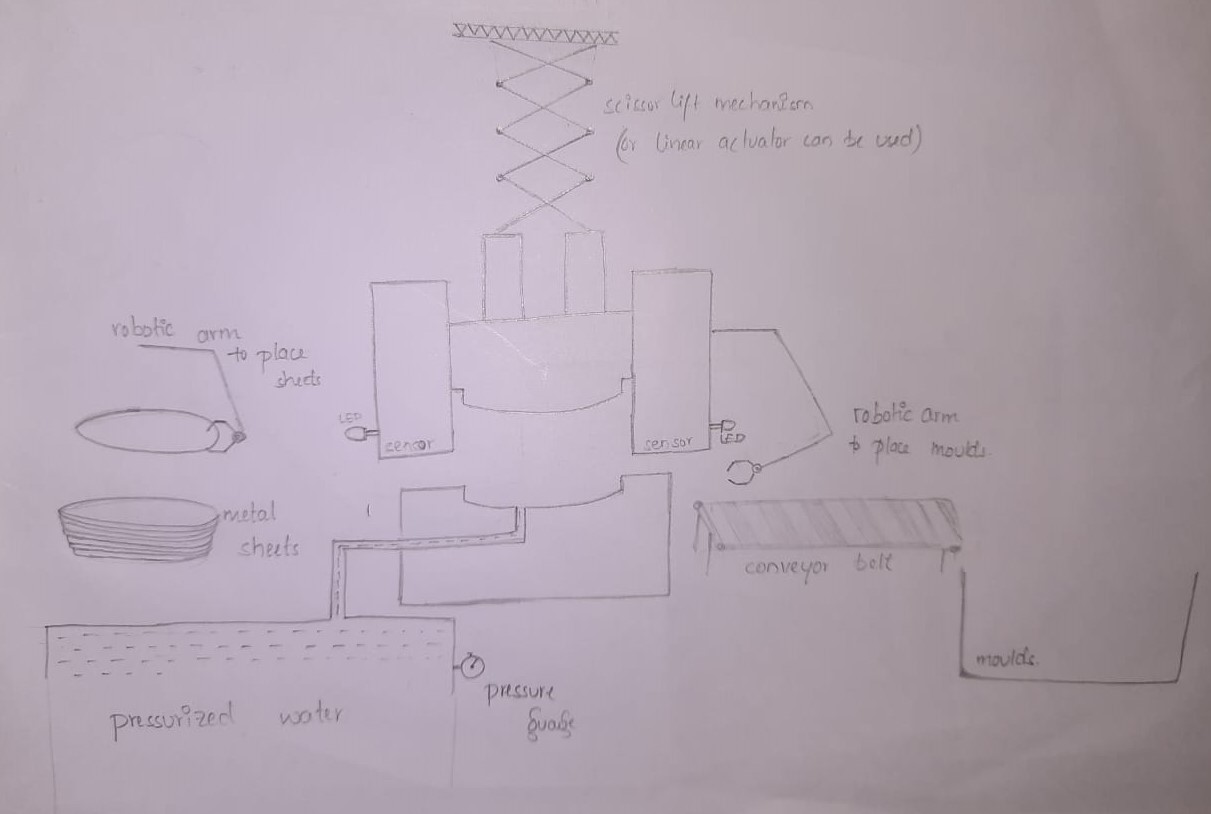 scissor lift mechanism
(or linear actuator can be used)
robotic arm
to place
sheets
LED
sensor
sensor
LED
robotic arm
to place moulds.
metal
sheets
conveyor belt
moulds.
pressurized water
pressure
guage